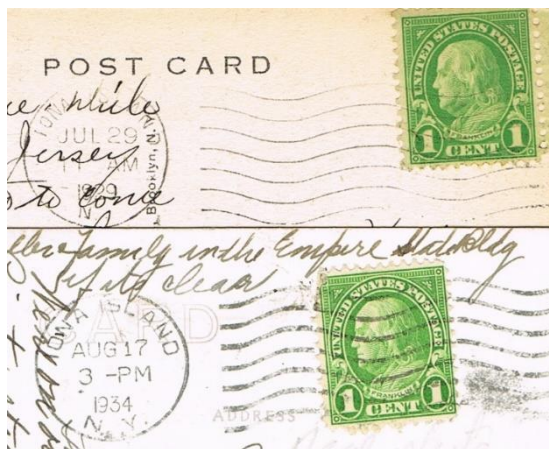 POST CARD
UNITED STATES POSTAGE
FRANKLIN
1 CENT 1
while
IONA
JUL 29
11 - AM
1929
N.Y.
Jersey
Brooklyn, N.
to come
family in the Empire State Bldg
if its clear
CARD
IONA ISLAND
AUG 17
3 -PM
1934
N.Y.
UNITED STATES POSTAGE
FRANKLIN
1 CENT 1
ADDRESS